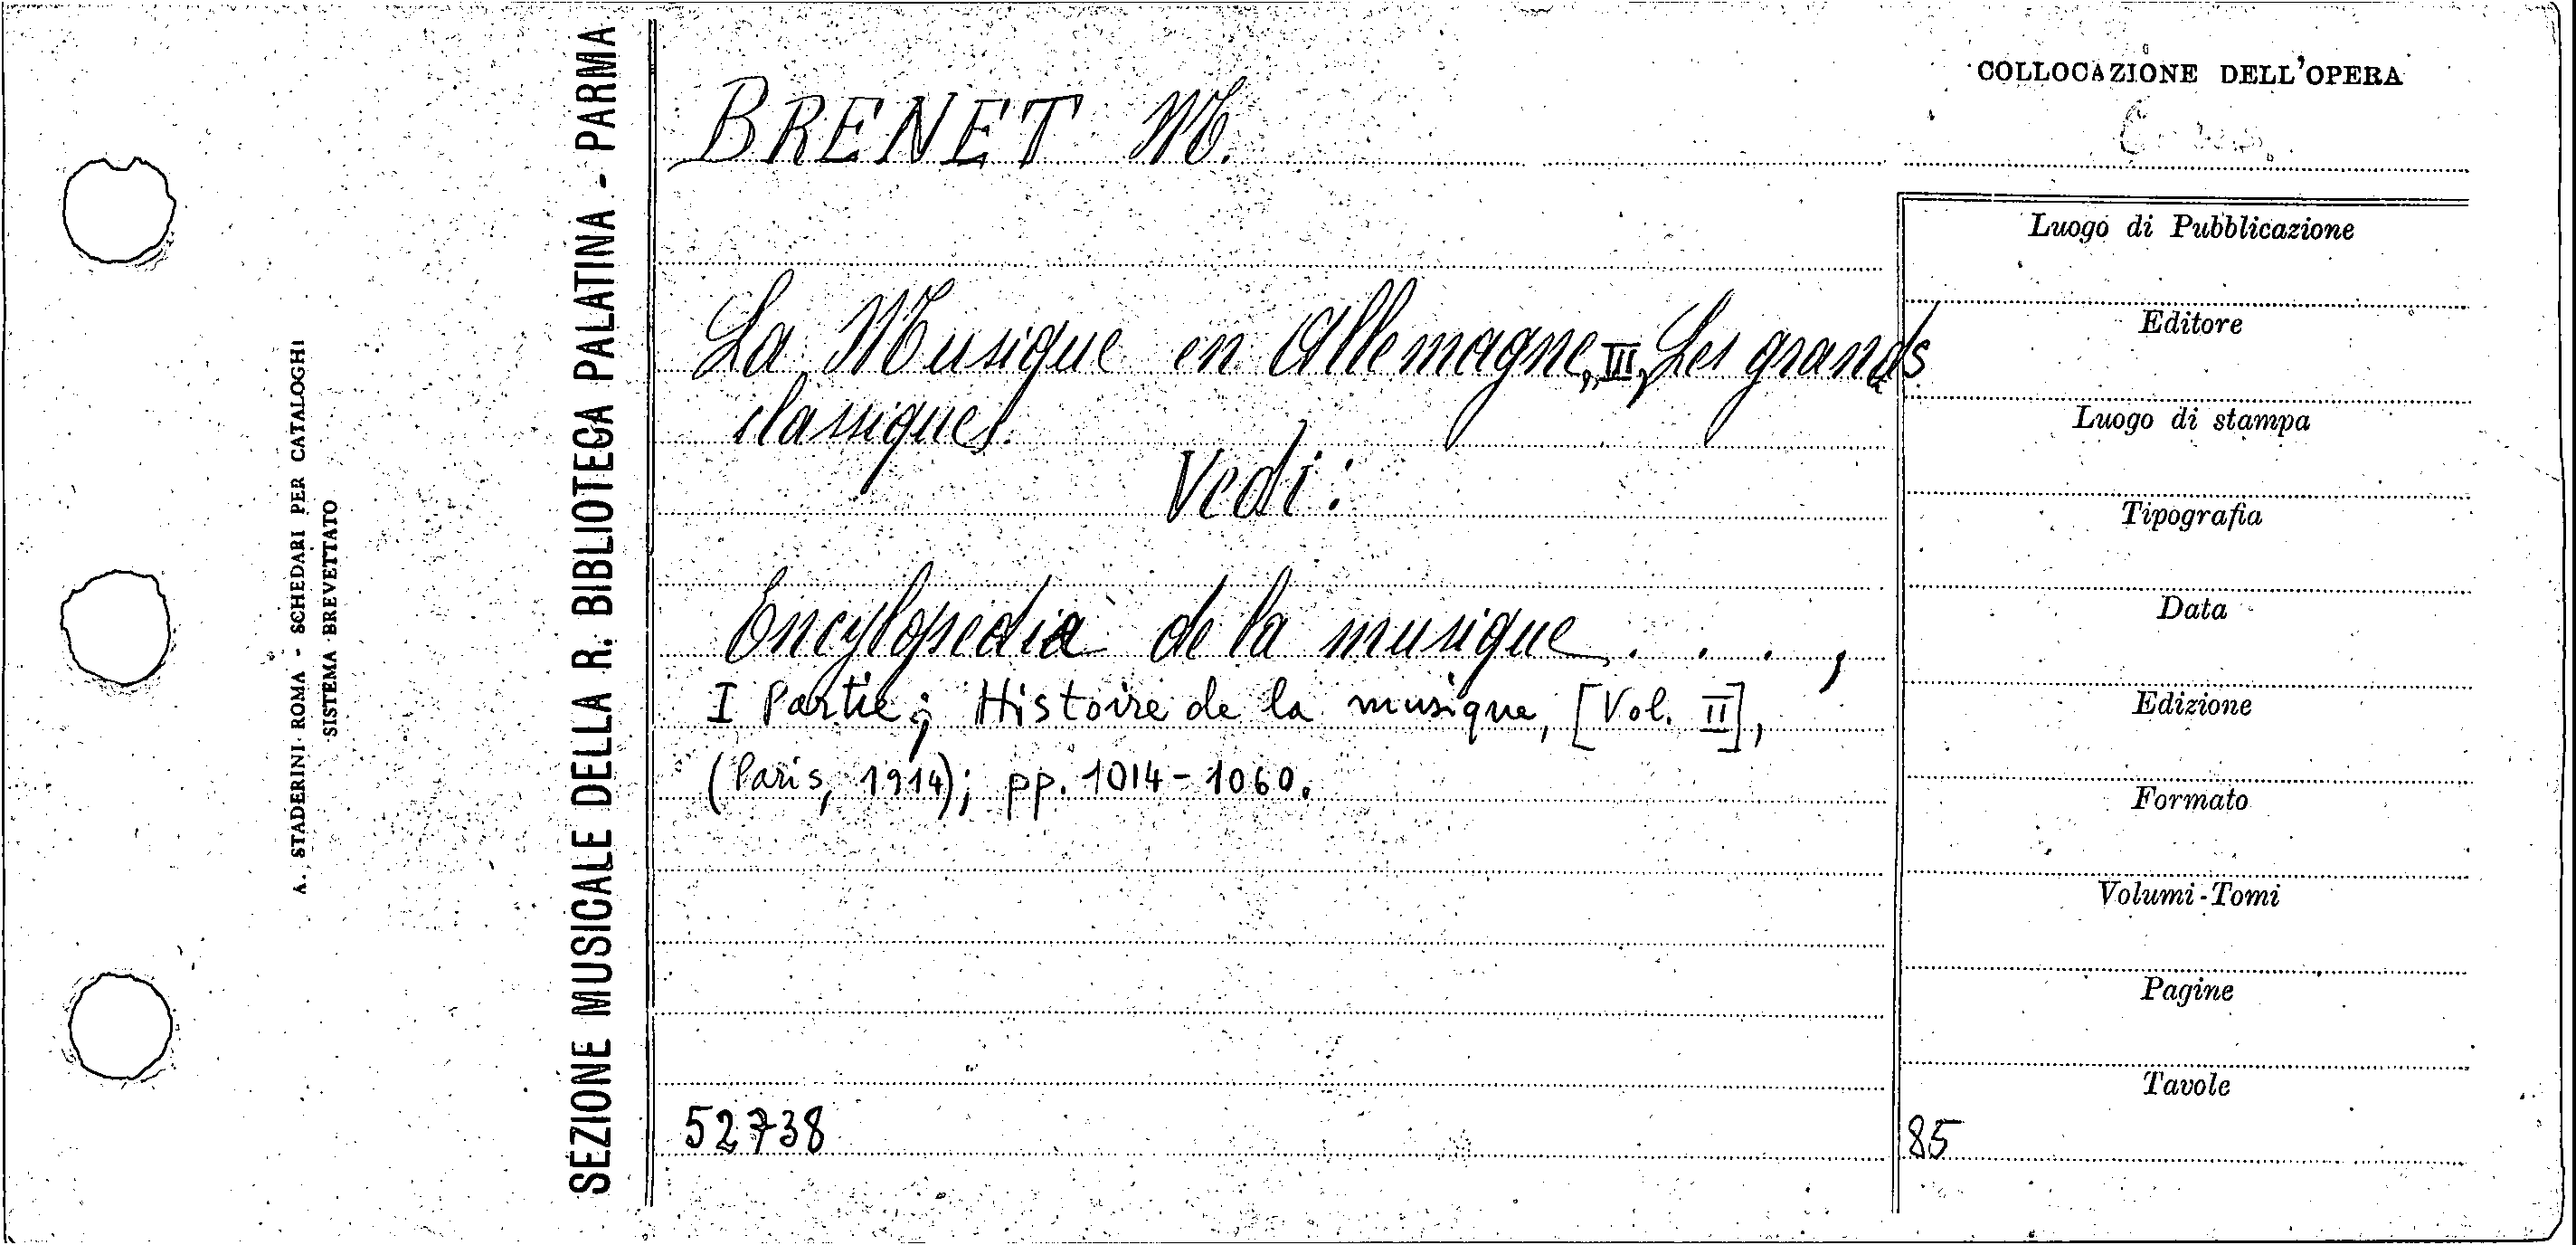 A. STADERINI ROMA - SCHEDARI PER CATALOGHI
SISTEMA BREVETTATO
SEZIONE MUSICALE DELLA R. BIBLIOTECA PALATINA - PARMA
BRENET M.
La Musique en Allemagne, III, Les grands
classiques.
Vedi:
Encylopedia de la musique . . . ,
I Partie; Histoire de la musique, [Vol. II],
(Paris, 1914); pp. 1014-1060.
52738
COLLOCAZIONE DELL'OPERA
Luogo di Pubblicazione
Editore
Luogo di stampa
Tipografia
Data
Edizione
Formato
Volumi-Tomi
Pagine
Tavole
85